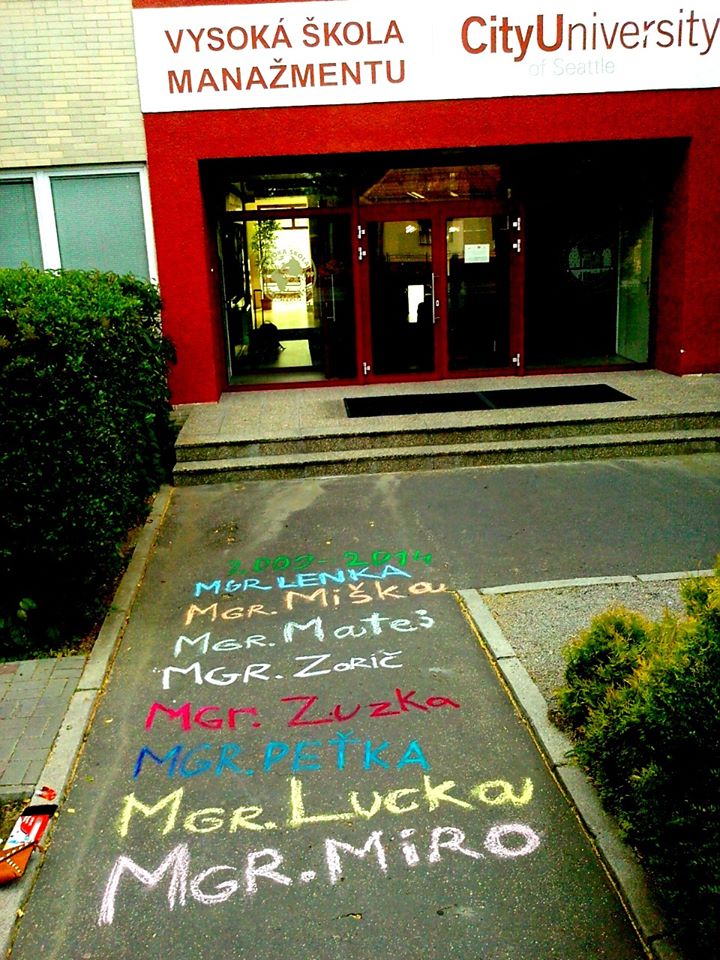 VYSOKÁ ŠKOLA
MANAŽMENTU
CityUniversity
of Seattle
2009-2014
MGR LENKA
MGR. Miška
MGR. Mateš
MGR. ZORIČ
MGr. Zuzka
MGR. PEŤKA
MGR. Lucka
MGR. MiRO